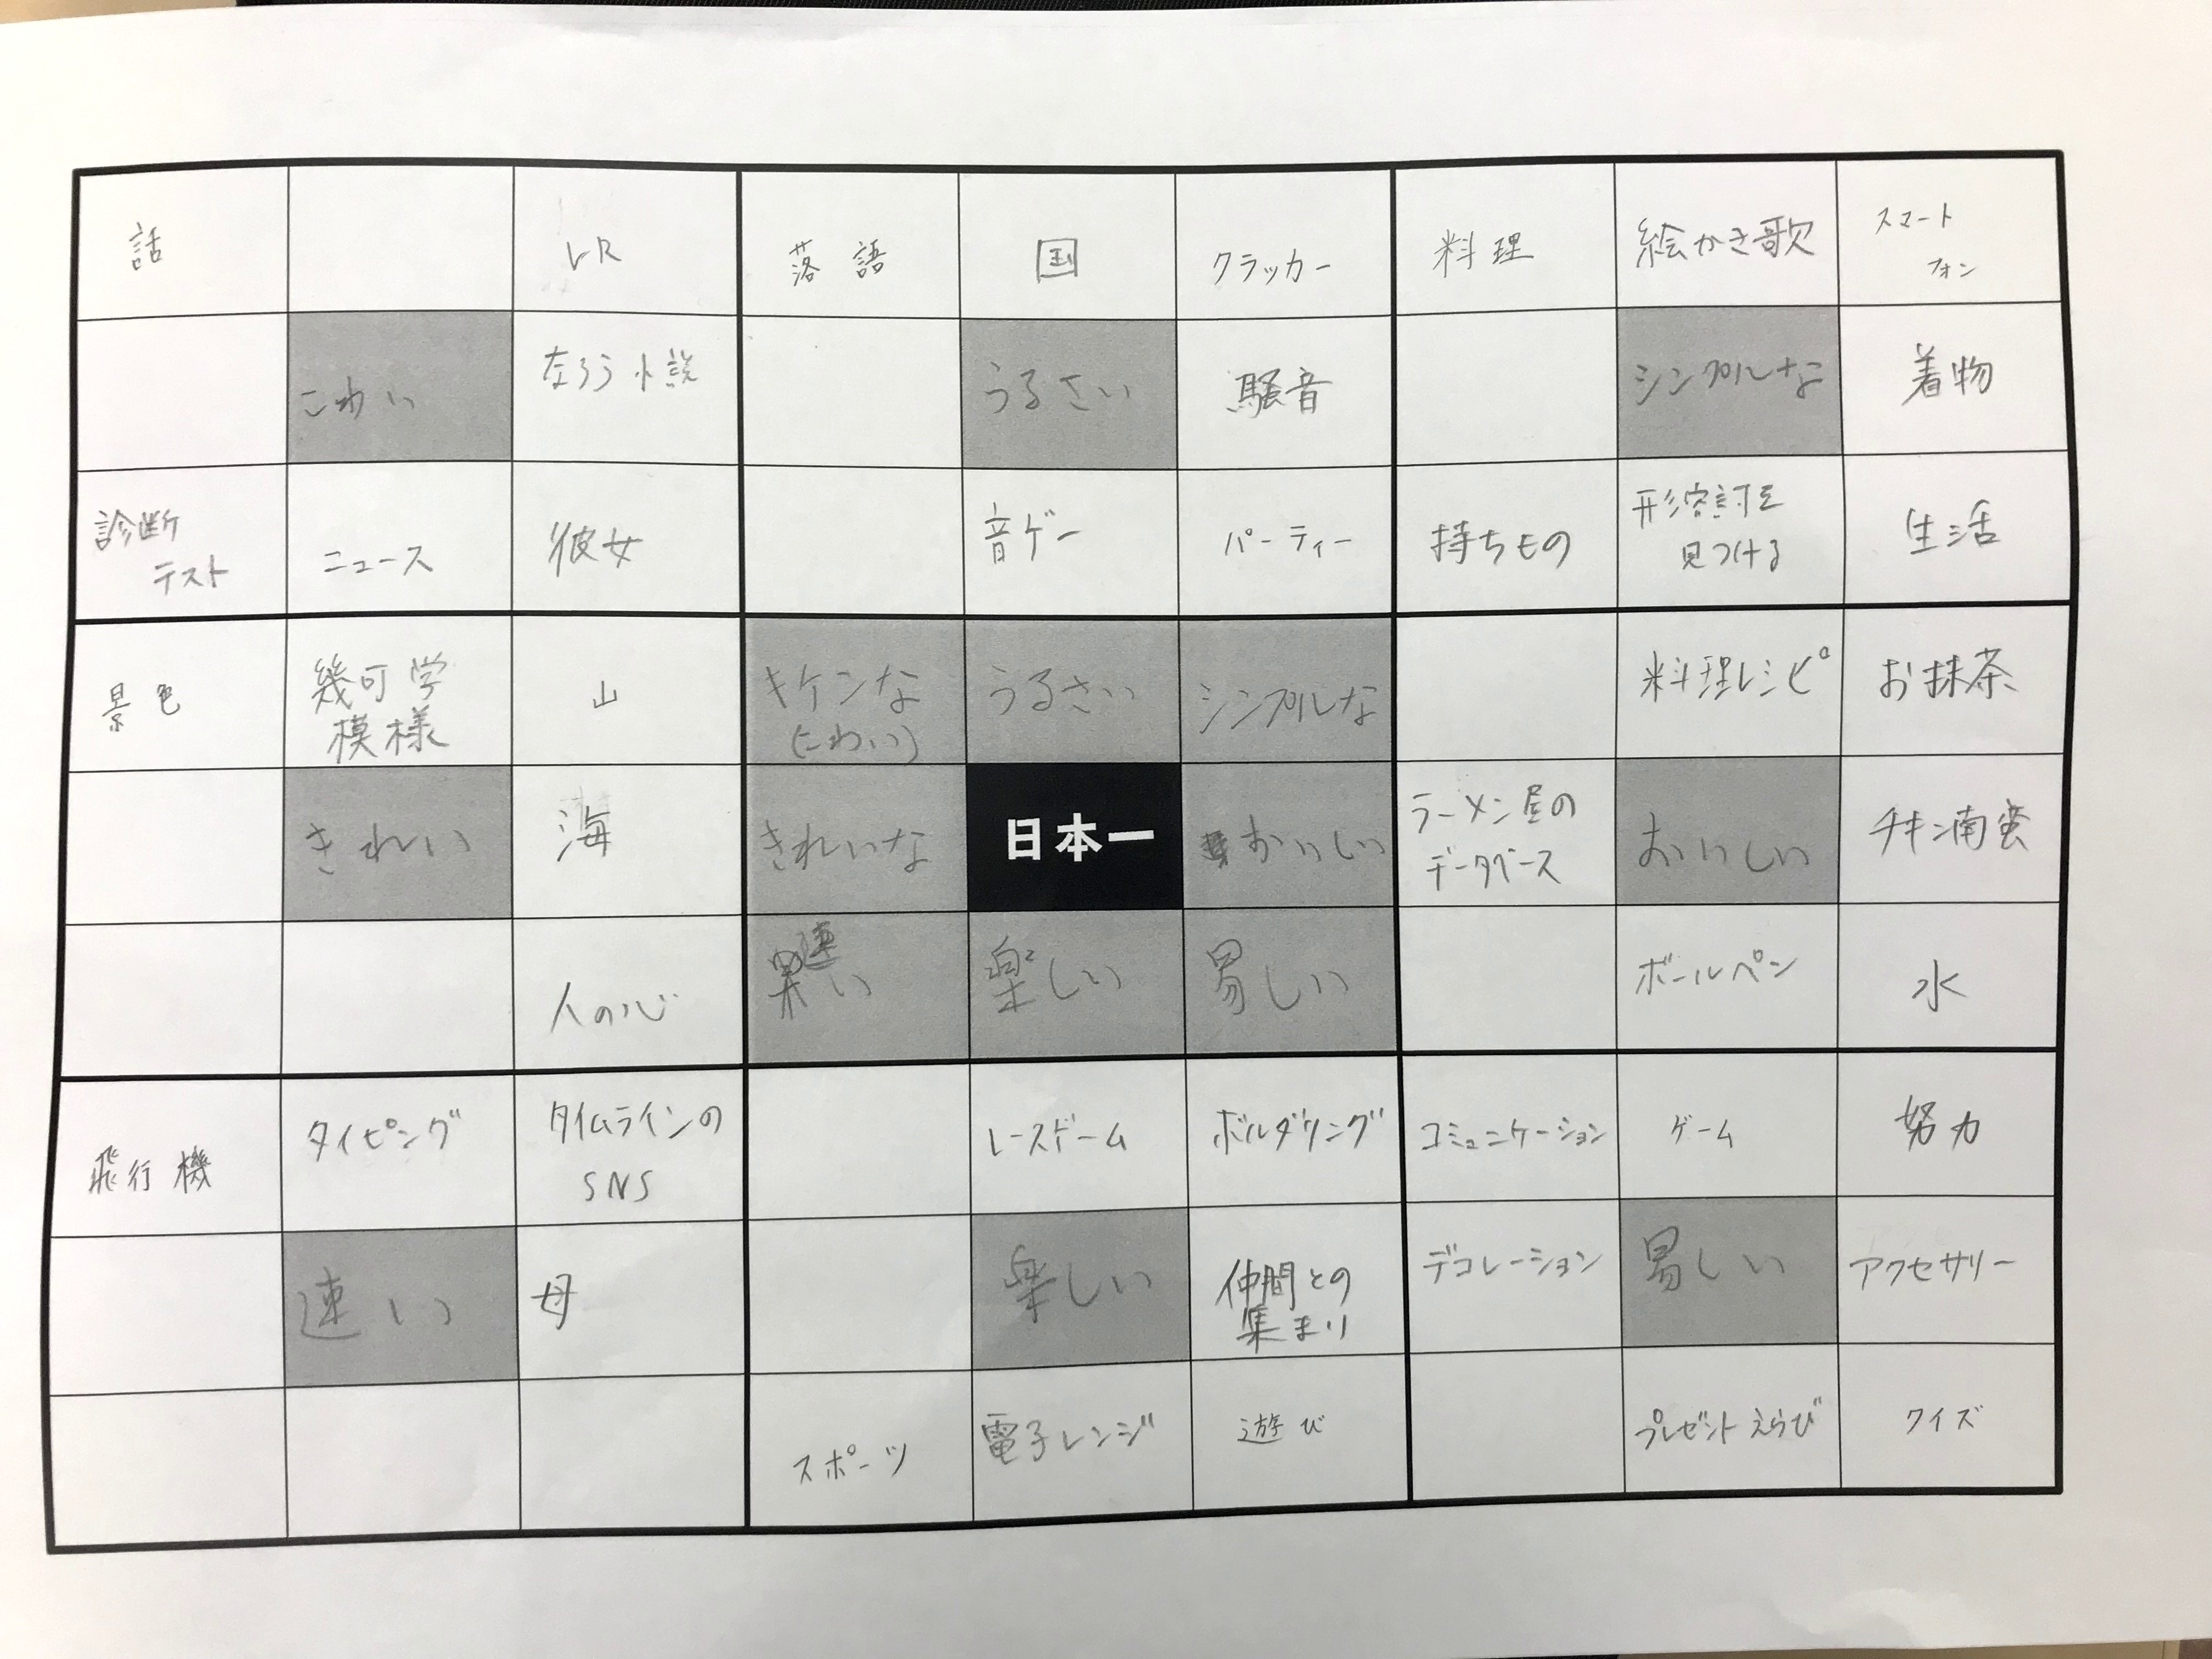 話
落語
国
クラッカー
料理
絵かき歌
スマート
フォン
こわい
うるさい
騒音
シンプルな
着物
診断
テスト
ニュース
彼女
音ゲー
パーティー
持ちもの
見つける
生活
景色
幾可学
模様
山
キケンな
(こわい)
うるさい
シンプルな
料理レシピ
お抹茶
きれい
海
きれいな
日本一
おいしい
ラーメン屋の
データベース
おいしい
チキン南蛮
人の心
速い
楽しい
易しい
ボールペン
水
飛行機
タイピング
タイムラインの
SNS
ボルダリング
コミュニケーション
ゲーム
努力
速い
母
楽しい
仲間との
集まり
デコレーション
易しい
アクセサリー
スポーツ
電子レンジ
遊び
プレゼントえらび
クイズ